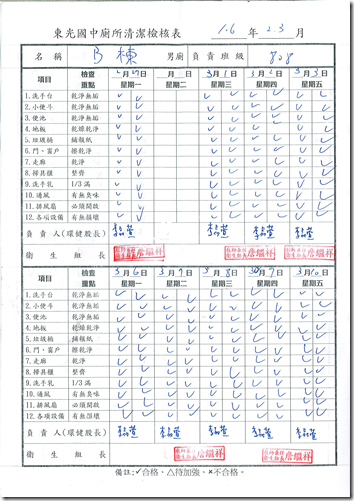 東光國中廁所清潔檢核表 106 年 2.3 月
名稱 B棟 男廁 負責班級 808
項目 檢查重點 2月27日 星期一 月 日 星期二 3月1日 星期三 3月2日 星期四 3月3日 星期五
1.洗手台 乾淨無垢 ✓ ✓ ✓ ✓ ✓
2.小便斗 乾淨無垢 ✓ ✓ ✓ ✓ ✓
3.便池 乾淨無垢 ✓ ✓ ✓ ✓ ✓
4.地板 乾燥乾淨 ✓ ✓ ✓ ✓ ✓
5.垃圾桶 鋪報紙 ✓ ✓ ✓ ✓ ✓
6.門、窗戶 擦乾淨 ✓ ✓ ✓ ✓ ✓
7.走廊 乾淨 ✓ ✓ ✓ ✓ ✓
8.掃具櫃 整齊 ✓ ✓ ✓ ✓ ✓
9.洗手乳 1/3滿 ✓ ✓ ✓ ✓ ✓
10.通風 有無臭味 ✓ ✓ ✓ ✓ ✓
11.排風扇 必須開啟 ✓ ✓ ✓ ✓ ✓
12.各項設備 有無損壞 ✓ ✓ ✓ ✓ ✓
負責人(環健股長)
衛生組長
項目 檢查重點 3月6日 星期一 3月7日 星期二 3月8日 星期三 3月9日 星期四 3月10日 星期五
1.洗手台 乾淨無垢 ✓ ✓ ✓ ✓ ✓
2.小便斗 乾淨無垢 ✓ ✓ ✓ ✓ ✓
3.便池 乾淨無垢 ✓ ✓ ✓ ✓ ✓
4.地板 乾燥乾淨 ✓ ✓ ✓ ✓ ✓
5.垃圾桶 鋪報紙 ✓ ✓ ✓ ✓ ✓
6.門、窗戶 擦乾淨 ✓ ✓ ✓ ✓ ✓
7.走廊 乾淨 ✓ ✓ ✓ ✓ ✓
8.掃具櫃 整齊 ✓ ✓ ✓ ✓ ✓
9.洗手乳 1/3滿 ✓ ✓ ✓ ✓ ✓
10.通風 有無臭味 ✓ ✓ ✓ ✓ ✓
11.排風扇 必須開啟 ✓ ✓ ✓ ✓ ✓
12.各項設備 有無損壞 ✓ ✓ ✓ ✓ ✓
負責人(環健股長)
衛生組長
備註:✓合格。△待加強。×不合格。